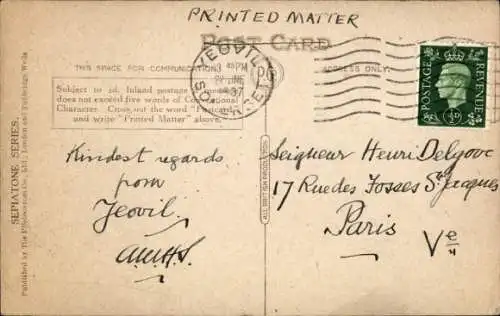 PRINTED MATTER
POST CARD
THIS SPACE FOR COMMUNICATION
ADDRESS ONLY.
YEOVIL
45 PM
JNE
37
SOMERSET
POSTAGE
REVENUE
½D
Subject to ½d. Inland postage if message
does not exceed five words of Conventional
Character. Cross out the word "Postcard"
and write "Printed Matter" above.
SEPIATONE SERIES.
Published by The Photochrom Co. Ltd., London and Tunbridge Wells
ALL BRITISH PRODUCTION
Kindest regards
from
Yeovil.
Seigneur Henri Delgove
17 Rue des Fosses St. Jacques
Paris
Ve